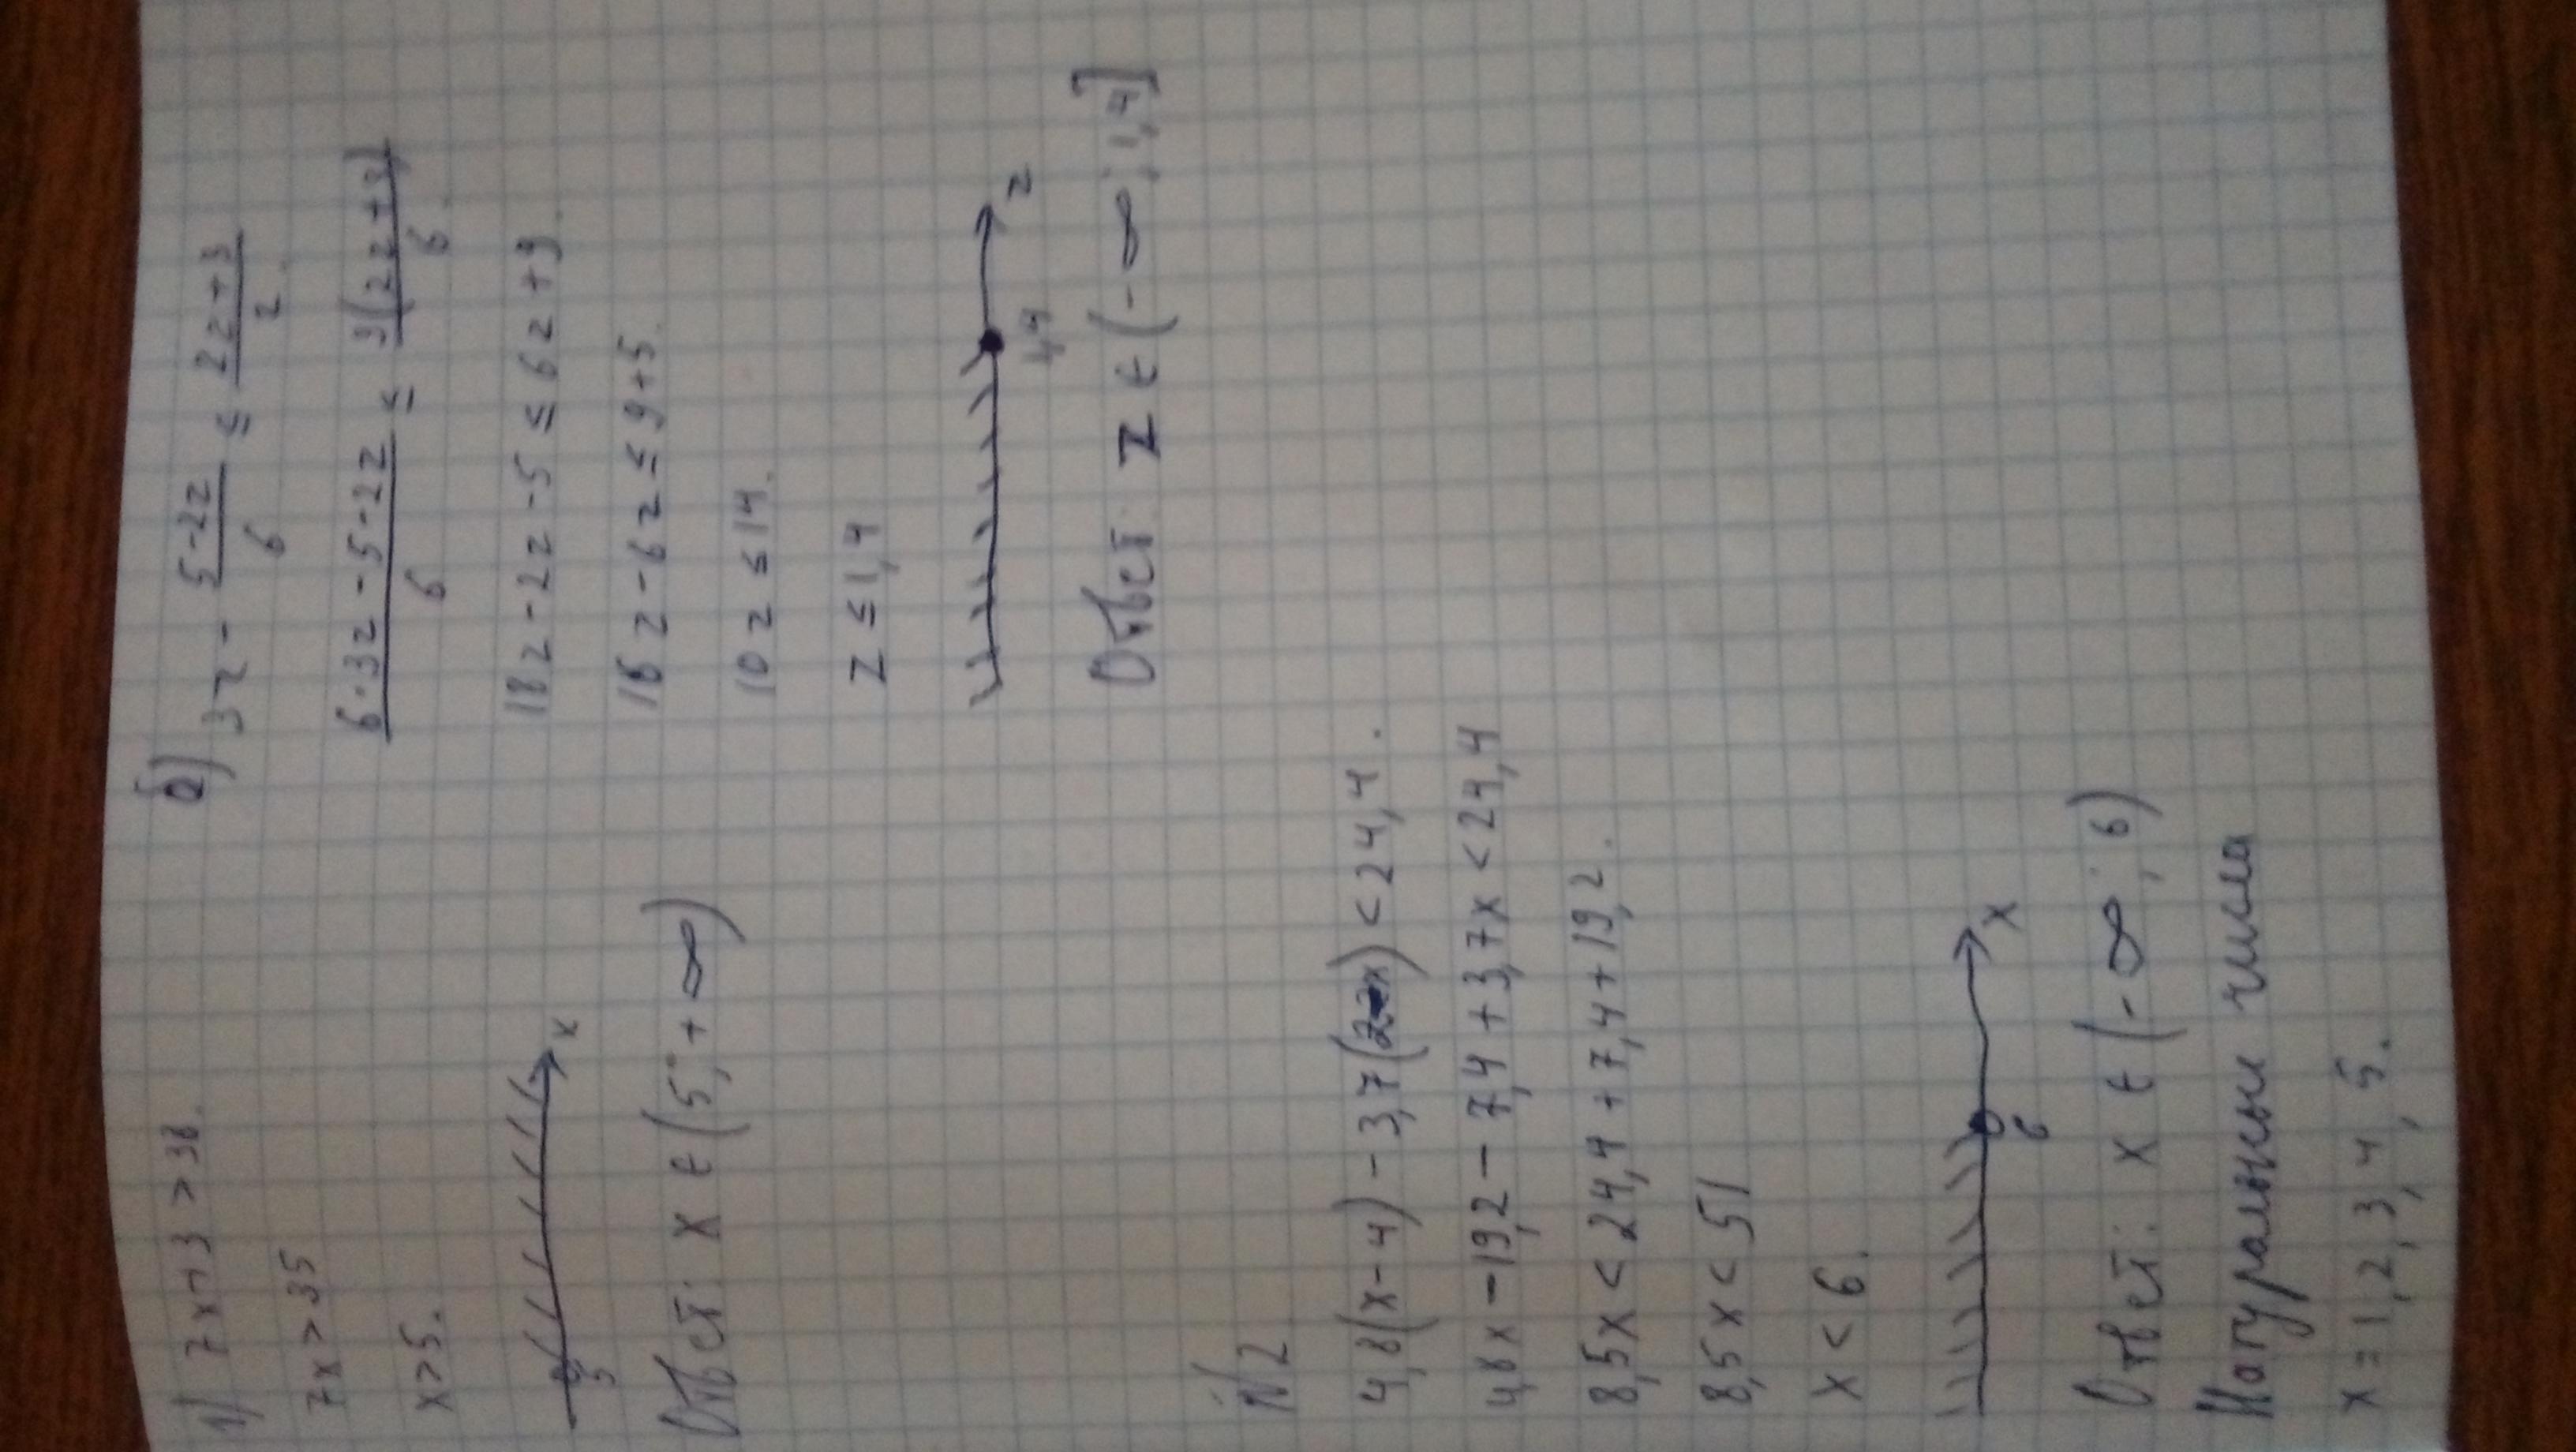 1) 7x+3>38.
7x>35
x>5.
5 x
Ответ: x ∈ (5; +∞)
б) 3z - (5-2z)/6 ≤ (2z+3)/2.
(6·3z-5-2z)/6 ≤ (3(2z+3))/6.
18z-2z-5 ≤ 6z+9.
16z-6z ≤ 9+5.
10z ≤ 14.
z ≤ 1,4
1,4 z
Ответ: z ∈ (-∞; 1,4]
№2
4,8(x-4)-3,7(2-x)<24,4.
4,8x-19,2-7,4+3,7x<24,4
8,5x<24,4+7,4+19,2.
8,5x<51
x<6.
6 x
Ответ: x ∈ (-∞; 6)
числа
x=1,2,3,4,5.